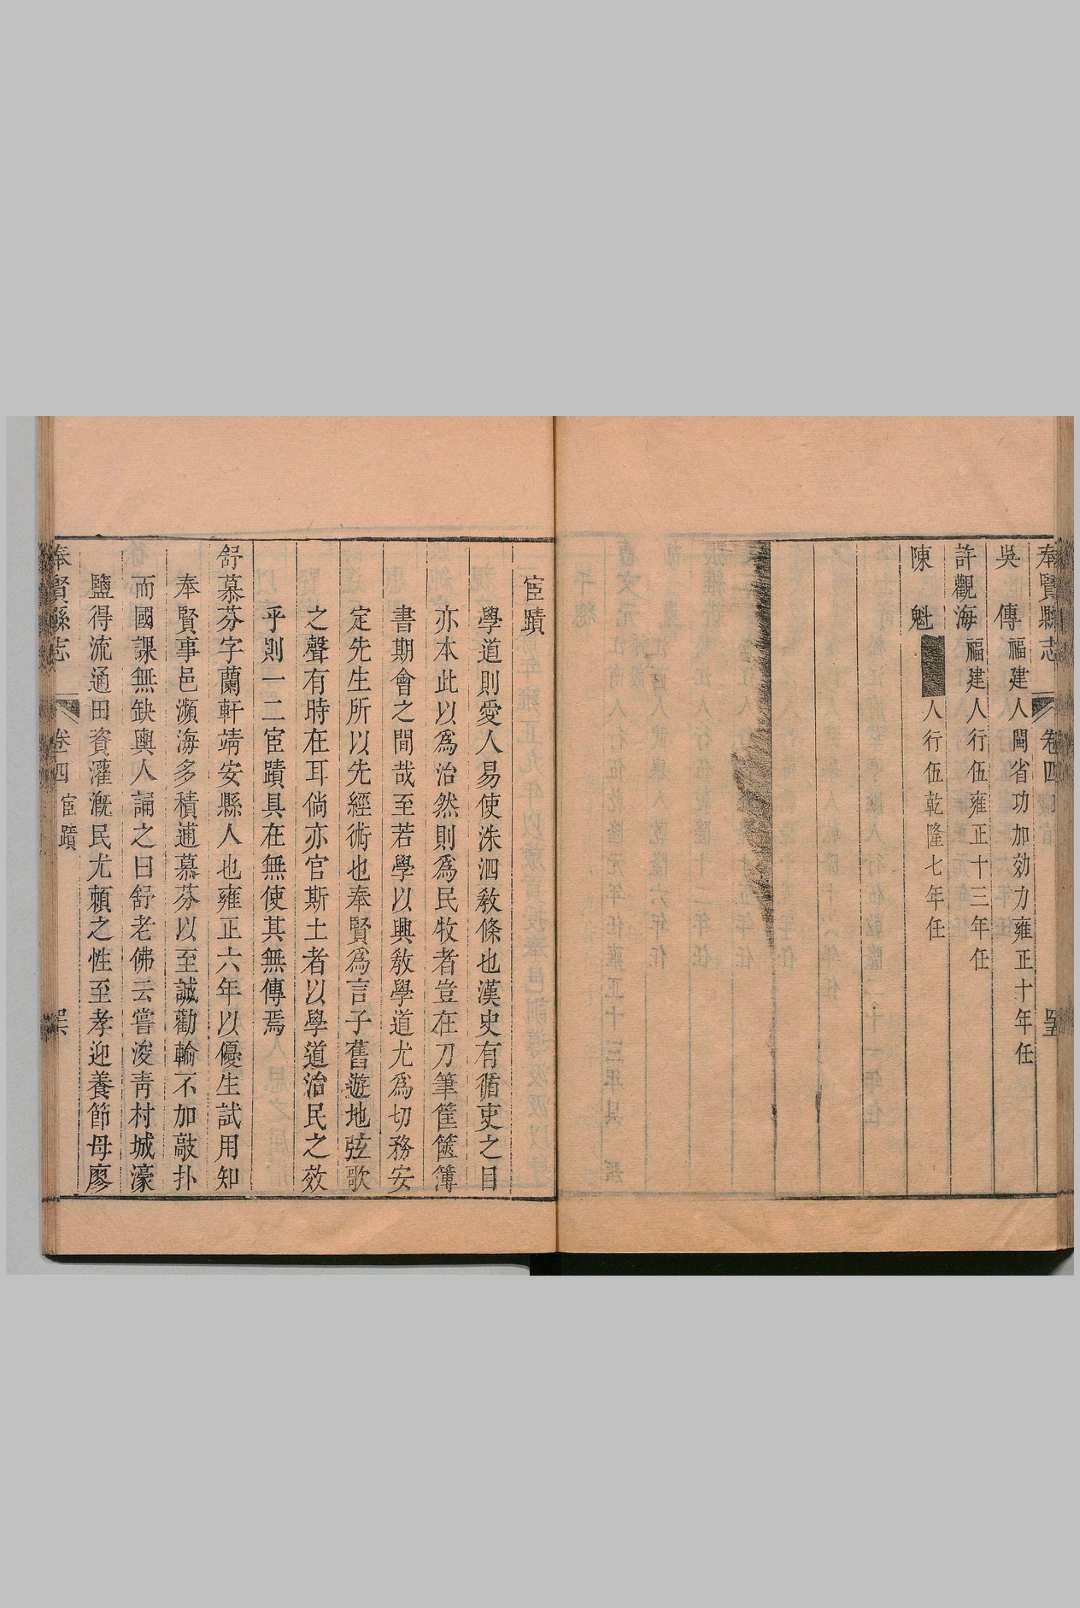 奉賢縣志 卷四
吳 傳 福建人閩省功加効力雍正十年任
許觀海 福建人行伍雍正十三年任
陳 魁 人行伍乾隆七年任
宦蹟
學道則愛人易使洙泗敎條也漢史有循吏之目
亦本此以爲治然則爲民牧者豈在刀筆筐篋簿
書期會之間哉至若學以興敎學道尤爲切務安
定先生所以先經術也奉賢爲言子舊遊地弦歌
之聲有時在耳倘亦官斯土者以學道治民之效
乎則一二宦蹟具在無使其無傳焉
舒慕芬字蘭軒靖安縣人也雍正六年以優生試用知
奉賢事邑瀕海多積逋慕芬以至誠勸輸不加敲扑
而國課無缺輿人誦之曰舒老佛云嘗浚靑村城濠
鹽得流通田資灌漑民尤頼之性至孝迎養節母廖
奉賢縣志 卷四 宦蹟